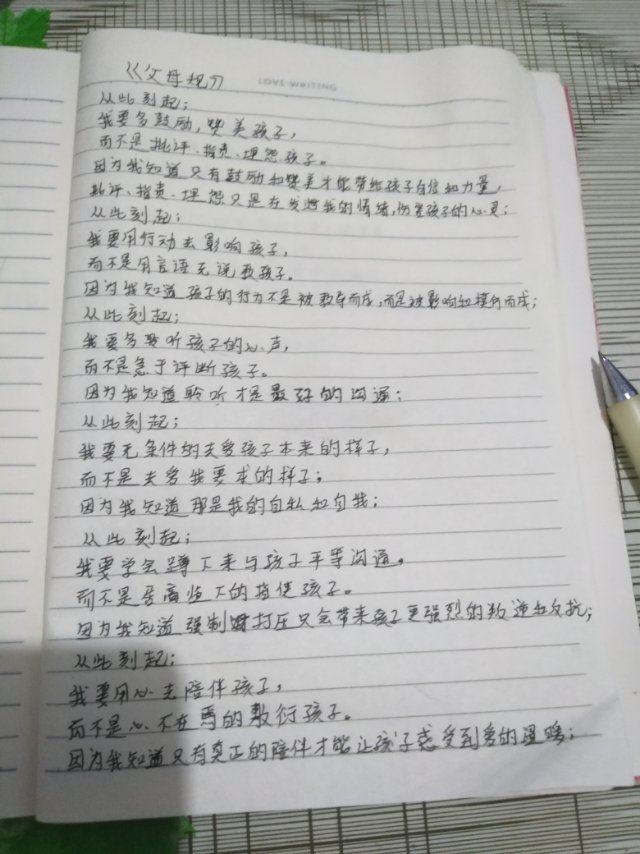 《父母规》
LOVE WRITING
从此刻起;
我要多鼓励,赞美孩子,
而不是批评、指责、埋怨孩子。
因为我知道只有鼓励和赞美才能带给孩子自信和力量,
批评、指责、埋怨只是在发泄我的情绪,伤害孩子的心灵;
从此刻起;
我要用行动去影响孩子,
而不是用言语去说教孩子。
因为我知道孩子的行为不是被教导而成,而是被影响和模仿而成;
从此刻起;
我要多聆听孩子的心声,
而不是急于评断孩子。
因为我知道聆听才是最好的沟通;
从此刻起;
我要无条件的去爱孩子本来的样子,
而不是去爱我要求的样子;
因为我知道那是我的自私和自我;
从此刻起;
我要学会蹲下来与孩子平等沟通。
而不是居高临下的指使孩子。
因为我知道强制打压只会带来孩子更强烈的叛逆和反抗;
从此刻起;
我要用心去陪伴孩子,
而不是心不在焉的敷衍孩子。
因为我知道只有真正的陪伴才能让孩子感受到爱的温暖;